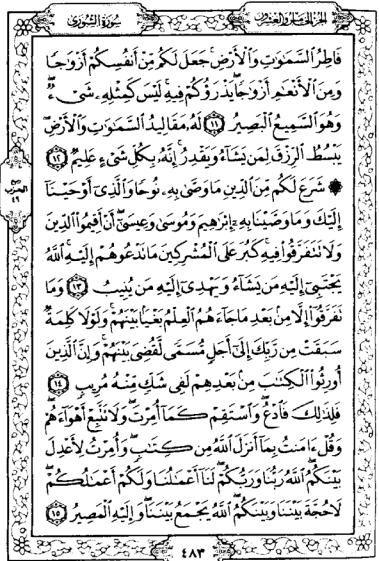 سُورَةُ الشُّورَىٰ
الجزء الخامس والعشرون
فَاطِرُ ٱلسَّمَٰوَٰتِ وَٱلْأَرْضِ ۚ جَعَلَ لَكُم مِّنْ أَنفُسِكُمْ أَزْوَٰجًا
وَمِنَ ٱلْأَنْعَٰمِ أَزْوَٰجًا ۖ يَذْرَؤُكُمْ فِيهِ ۚ لَيْسَ كَمِثْلِهِۦ شَىْءٌ ۖ
وَهُوَ ٱلسَّمِيعُ ٱلْبَصِيرُ ١١ لَهُۥ مَقَالِيدُ ٱلسَّمَٰوَٰتِ وَٱلْأَرْضِ ۖ
يَبْسُطُ ٱلرِّزْقَ لِمَن يَشَآءُ وَيَقْدِرُ ۚ إِنَّهُۥ بِكُلِّ شَىْءٍ عَلِيمٌ ١٢
۞ شَرَعَ لَكُم مِّنَ ٱلدِّينِ مَا وَصَّىٰ بِهِۦ نُوحًا وَٱلَّذِىٓ أَوْحَيْنَآ
إِلَيْكَ وَمَا وَصَّيْنَا بِهِۦٓ إِبْرَٰهِيمَ وَمُوسَىٰ وَعِيسَىٰٓ ۖ أَنْ أَقِيمُوا۟ ٱلدِّينَ
وَلَا تَتَفَرَّقُوا۟ فِيهِ ۚ كَبُرَ عَلَى ٱلْمُشْرِكِينَ مَا تَدْعُوهُمْ إِلَيْهِ ۚ ٱللَّهُ
يَجْتَبِىٓ إِلَيْهِ مَن يَشَآءُ وَيَهْدِىٓ إِلَيْهِ مَن يُنِيبُ ١٣ وَمَا
تَفَرَّقُوٓا۟ إِلَّا مِنۢ بَعْدِ مَا جَآءَهُمُ ٱلْعِلْمُ بَغْيًۢا بَيْنَهُمْ ۚ وَلَوْلَا كَلِمَةٌ
سَبَقَتْ مِن رَّبِّكَ إِلَىٰٓ أَجَلٍ مُّسَمًّى لَّقُضِىَ بَيْنَهُمْ ۚ وَإِنَّ ٱلَّذِينَ
أُورِثُوا۟ ٱلْكِتَٰبَ مِنۢ بَعْدِهِمْ لَفِى شَكٍّ مِّنْهُ مُرِيبٍ ١٤
فَلِذَٰلِكَ فَٱدْعُ ۖ وَٱسْتَقِمْ كَمَآ أُمِرْتَ ۖ وَلَا تَتَّبِعْ أَهْوَآءَهُمْ ۖ
وَقُلْ ءَامَنتُ بِمَآ أَنزَلَ ٱللَّهُ مِن كِتَٰبٍ ۖ وَأُمِرْتُ لِأَعْدِلَ
بَيْنَكُمُ ۖ ٱللَّهُ رَبُّنَا وَرَبُّكُمْ ۖ لَنَآ أَعْمَٰلُنَا وَلَكُمْ أَعْمَٰلُكُمْ ۖ
لَا حُجَّةَ بَيْنَنَا وَبَيْنَكُمُ ۖ ٱللَّهُ يَجْمَعُ بَيْنَنَا ۖ وَإِلَيْهِ ٱلْمَصِيرُ ١٥
الحزب
٤٩
٤٨٣